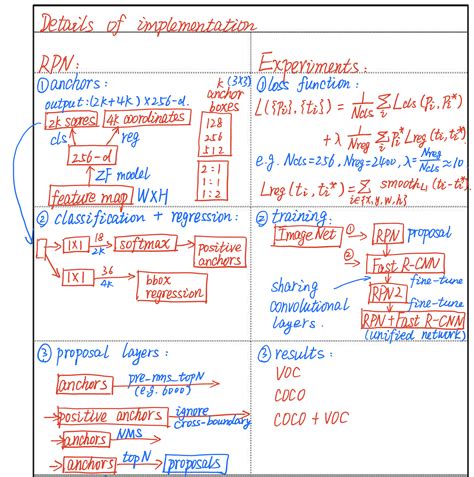 Details of implementation
RPN:
① anchors:
output:(2k+4k)×256-d.
2k scores
4k coordinates
cls
reg
256-d
ZF model
feature map
W×H
k (3×3)
anchor
boxes
128
256
512
2:1
1:1
1:2
② classification + regression:
1×1
18
2k
softmax
positive
anchors
1×1
36
4k
bbox
regression
③ proposal layers:
anchors
pre-nms_topN
(e.g. 6000)
positive anchors
ignore
cross-boundary
anchors
NMS
anchors
topN
proposals
Experiments:
① loss function:
L({pi},{ti}) = 1/Ncls Σi Lcls(pi, pi*)
+ λ 1/Nreg Σi pi* Lreg(ti, ti*)
e.g. Ncls=256, Nreg=2400, λ=Nreg/Ncls≈10
Lreg(ti, ti*)=Σ i∈{x,y,w,h} smoothL1(ti-ti*)
② training:
ImageNet
①
RPN
proposal
②
Fast R-CNN
sharing
convolutional
layers.
fine-tune
RPN2
fine-tune
RPN+Fast R-CNN
(unified network)
③ results:
VOC
COCO
COCO + VOC